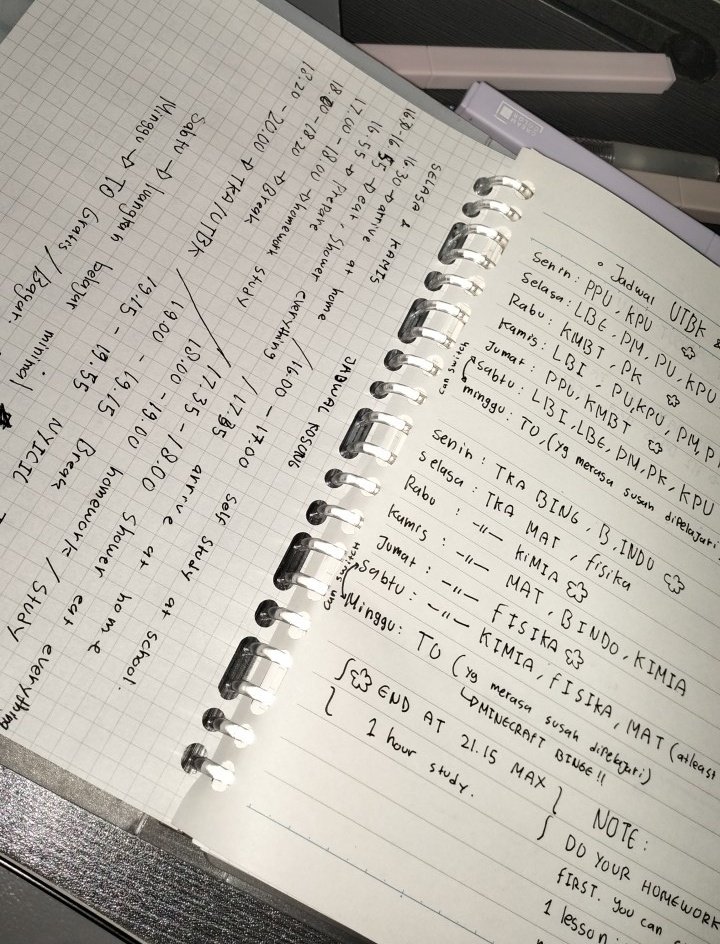 SELASA & KAMIS
16.30 → arrive at home
16.30-16.55 → eat, shower everything
16.55 → prepare
17.00 - 18.00 → homework study
18.00 - 18.20 → Break
18.20 - 20.00 → TKA/UTBK
Sabtu → luangkan belajar minimal
Minggu → TO Gratis/Bayar.
JADWAL KOSONG
16.00 - 17.00 self study at school.
17.35 arrive at home
17.35 - 18.00 shower eat everything
18.00 - 19.00 homework/study
19.00 - 19.15 Break
19.15 - 19.55 NYICIL
° Jadwal UTBK &
Senin : PPU, KPU
Selasa : LBE, PM, PU, KPU
Rabu : KMBT, PK
Kamis : LBI, PU, KPU, PM, P
Jumat : PPU, KMBT
Sabtu : LBI, LBE, PM, PK, KPU
minggu : TO, (yg merasa susah dipelajari
can switch
Senin : TKA BING, B.INDO
Selasa : TKA MAT, fisika
Rabu : -"- KIMIA
Kamis : -"- MAT, BINDO, KIMIA
Jumat : -"- FISIKA
Sabtu : -"- KIMIA, FISIKA, MAT (atleast
Minggu : TO (yg merasa susah dipelajari)
can switch
↳ MINECRAFT BINGE !!
END AT 21.15 MAX
1 hour study.
NOTE :
DO YOUR HOMEWORK
FIRST. You can
1 lesson